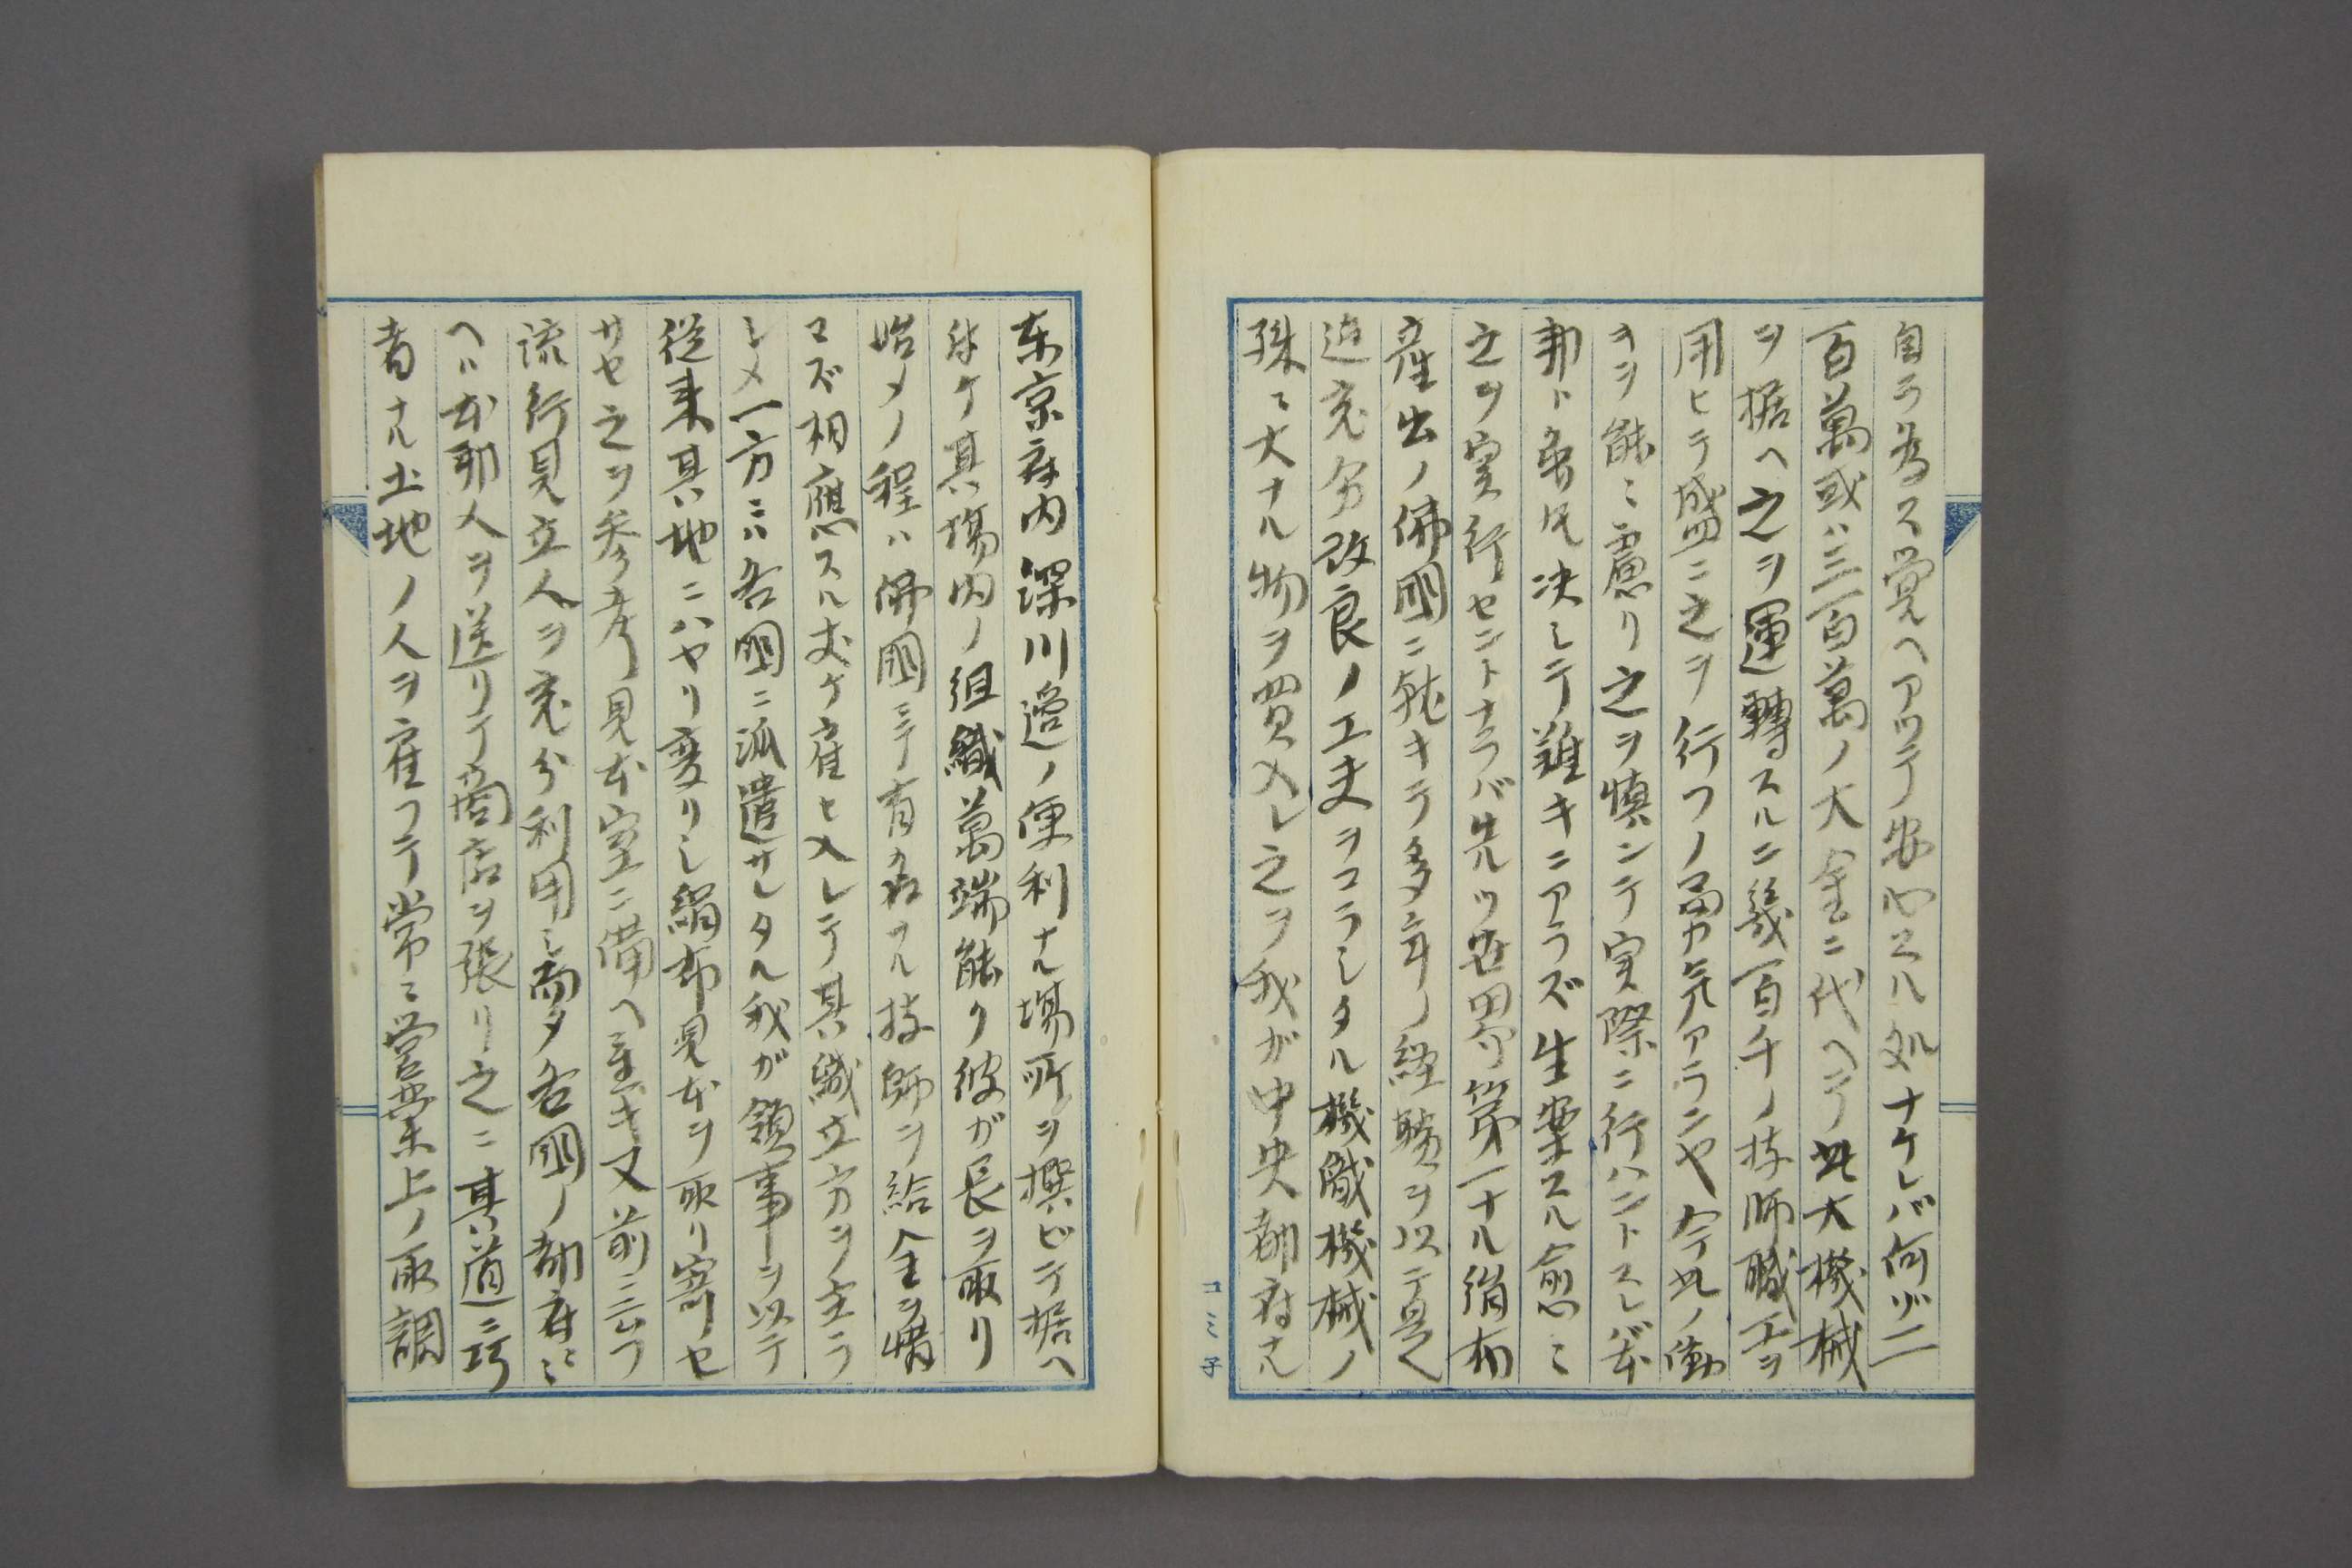 自ラ為ス覚ヘアツテ安心スル処ナケレバ何ゾ二
百萬或ハ三百萬ノ大金ニ代ヘテ此大機械
ヲ据ヘ之ヲ運轉スルニ幾百千ノ技師職工ヲ
用ヒテ盛ニ之ヲ行フノ勇気アランヤ今此ノ働
キヲ能ミ慮リ之ヲ慎ンテ実際ニ行ハントスレバ本
邦ト虽𪜈决シテ難キニアラズ生案スル愈ミ
之ヲ実行セントナラバ先ツ世界第一ナル絹布
産出ノ佛国ニ就キテ多年ノ経験ヲ以テ是
迠充分改良ノ工夫ヲコラシタル機織機械ノ
殊ニ大ナル物ヲ買入レ之ヲ我ガ中央都府ナル
東京府内深川邉ノ便利ナル場所ヲ撰ビテ据ヘ
付ケ其場内ノ組織萬端能ク彼ガ長ヲ取リ
始メノ程ハ佛国ニテ有名ナル技師ヲ給金ヲ惜
マズ相應スル丈ケ雇ヒ入レテ其織立方ヲ主ラ
シメ一方ニハ各国ニ派遣サレタル我ガ領事ヲ以テ
従来其地ニハヤリ変リシ絹布見本ヲ取リ寄セ
サセ之ヲ参考見本室ニ備ヘ置キ又前ニ云フ
流行見立人ヲ充分利用シ而タ各国ノ都府ニ
ヘハ本邦人ヲ送リテ商店ヲ張リ之ニ其道ニ巧
者ナル土地ノ人ヲ雇フテ常ニ営業上ノ取調
コミ子